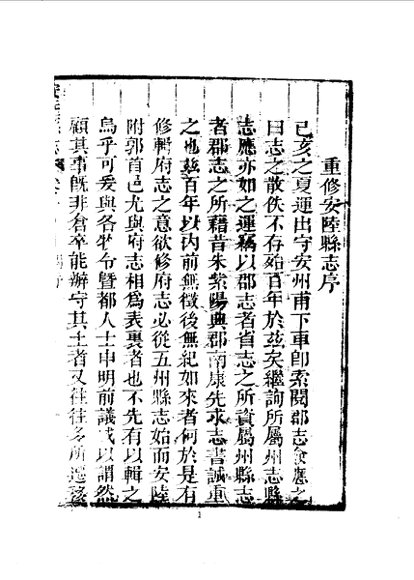 重修安陸縣志序
己亥之夏運出守安州甫下車卽索閱郡志僉應之
曰志之散佚不存殆百年於茲矣繼詢所屬州志縣
志應亦如之運竊以郡志者省志之所資屬州縣志
者郡志之所藉昔朱紫陽典郡南康先求志書誠重
之也茲百年以內前無徵後無紀如來者何於是有
修輯府志之意欲修府志必從五州縣志始而安陸
附郭首邑尤與府志相為表裏者也不先有以輯之
烏乎可爰與各牧令曁都人士申明前議或以謂然
顧其事旣非倉卒能辦守其土者又往往多所遷移
1